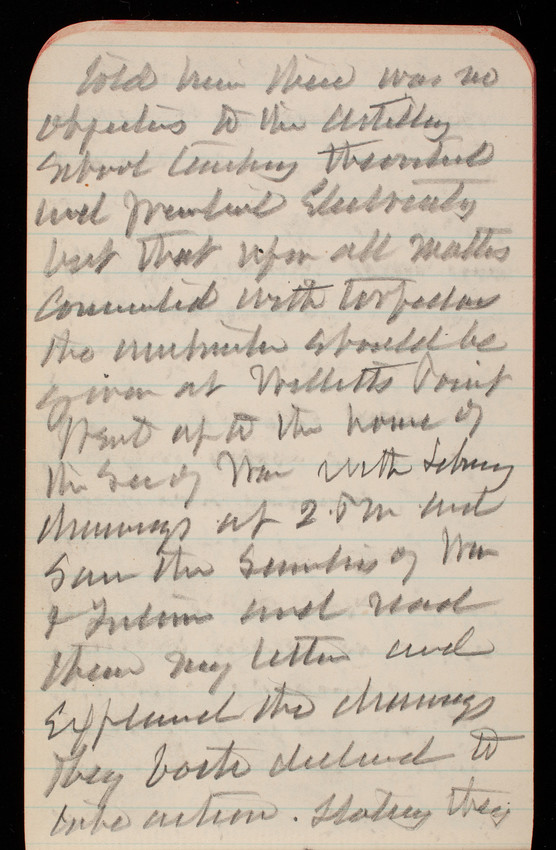 told him there was no
objection to the Artillery
School teaching theoretical
and practical Electricity
but that upon all matters
connected with torpedoes
the instruction should be
given at Willetts Point
Went up to the house of
the Sec of War with Library
drawings at 2 P.M and
Saw the Secretaries of War
& Interior and read
them my letter and
Explained the drawings
they both declined to
take action. Stating they